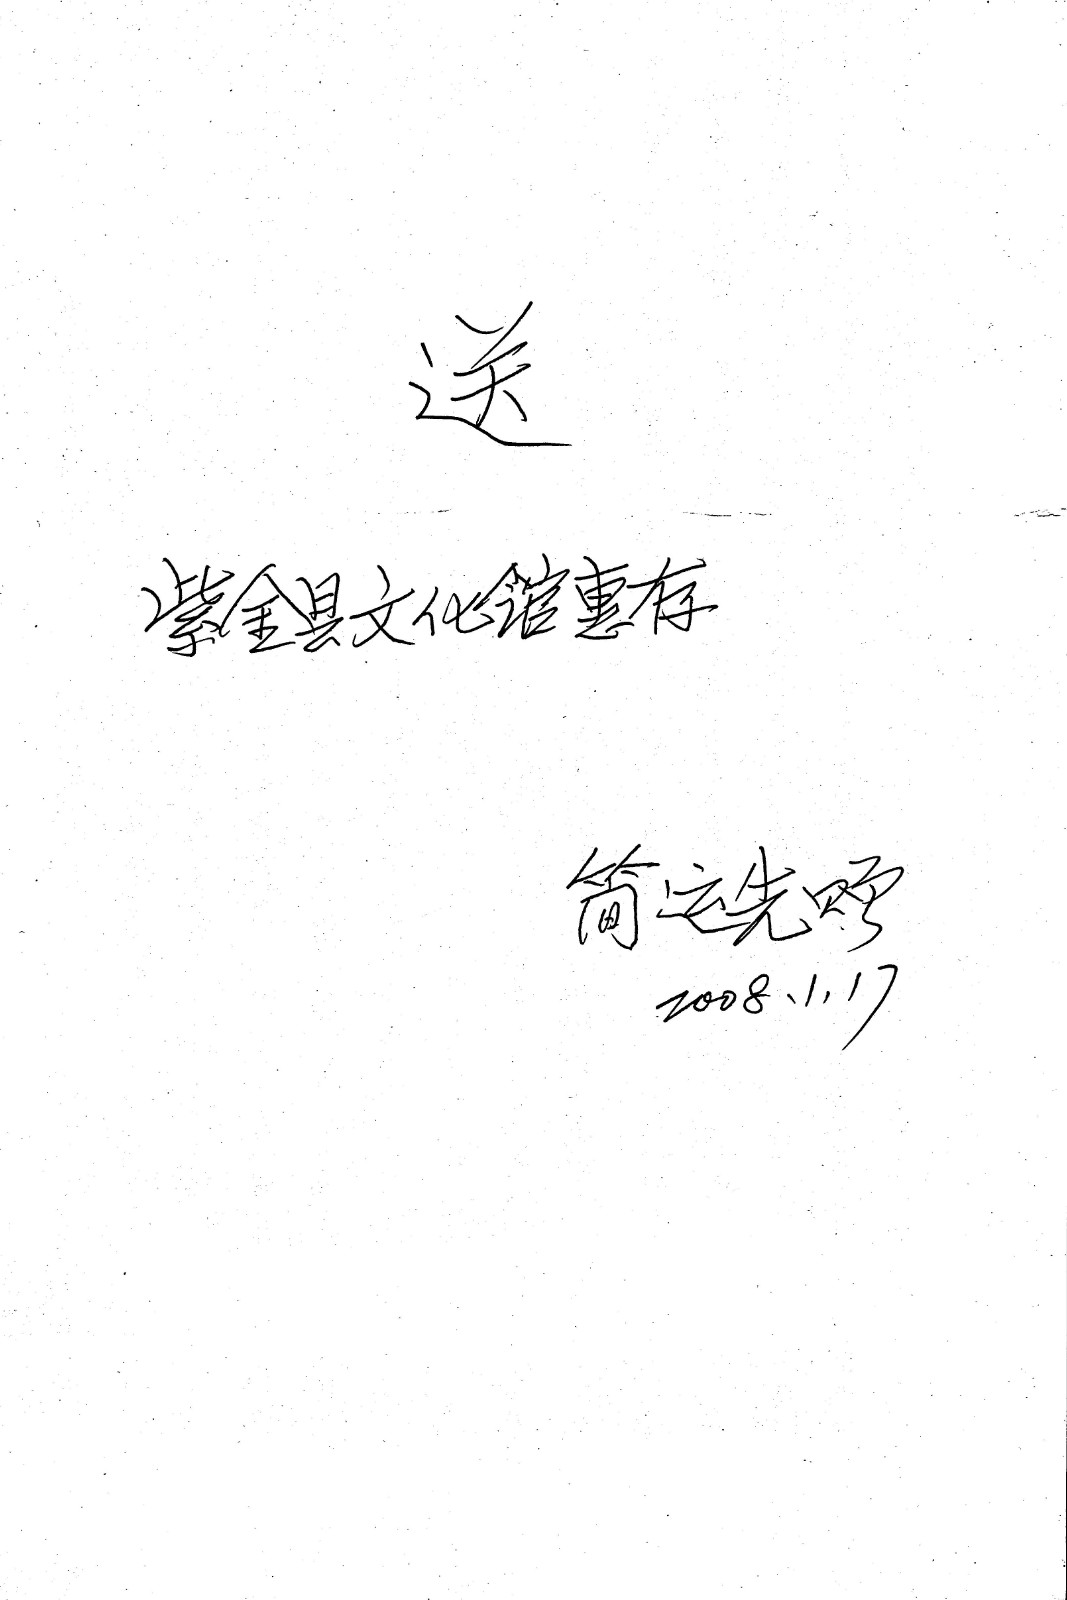 送
紫金县文化馆惠存
简运先赠
2008.1.17